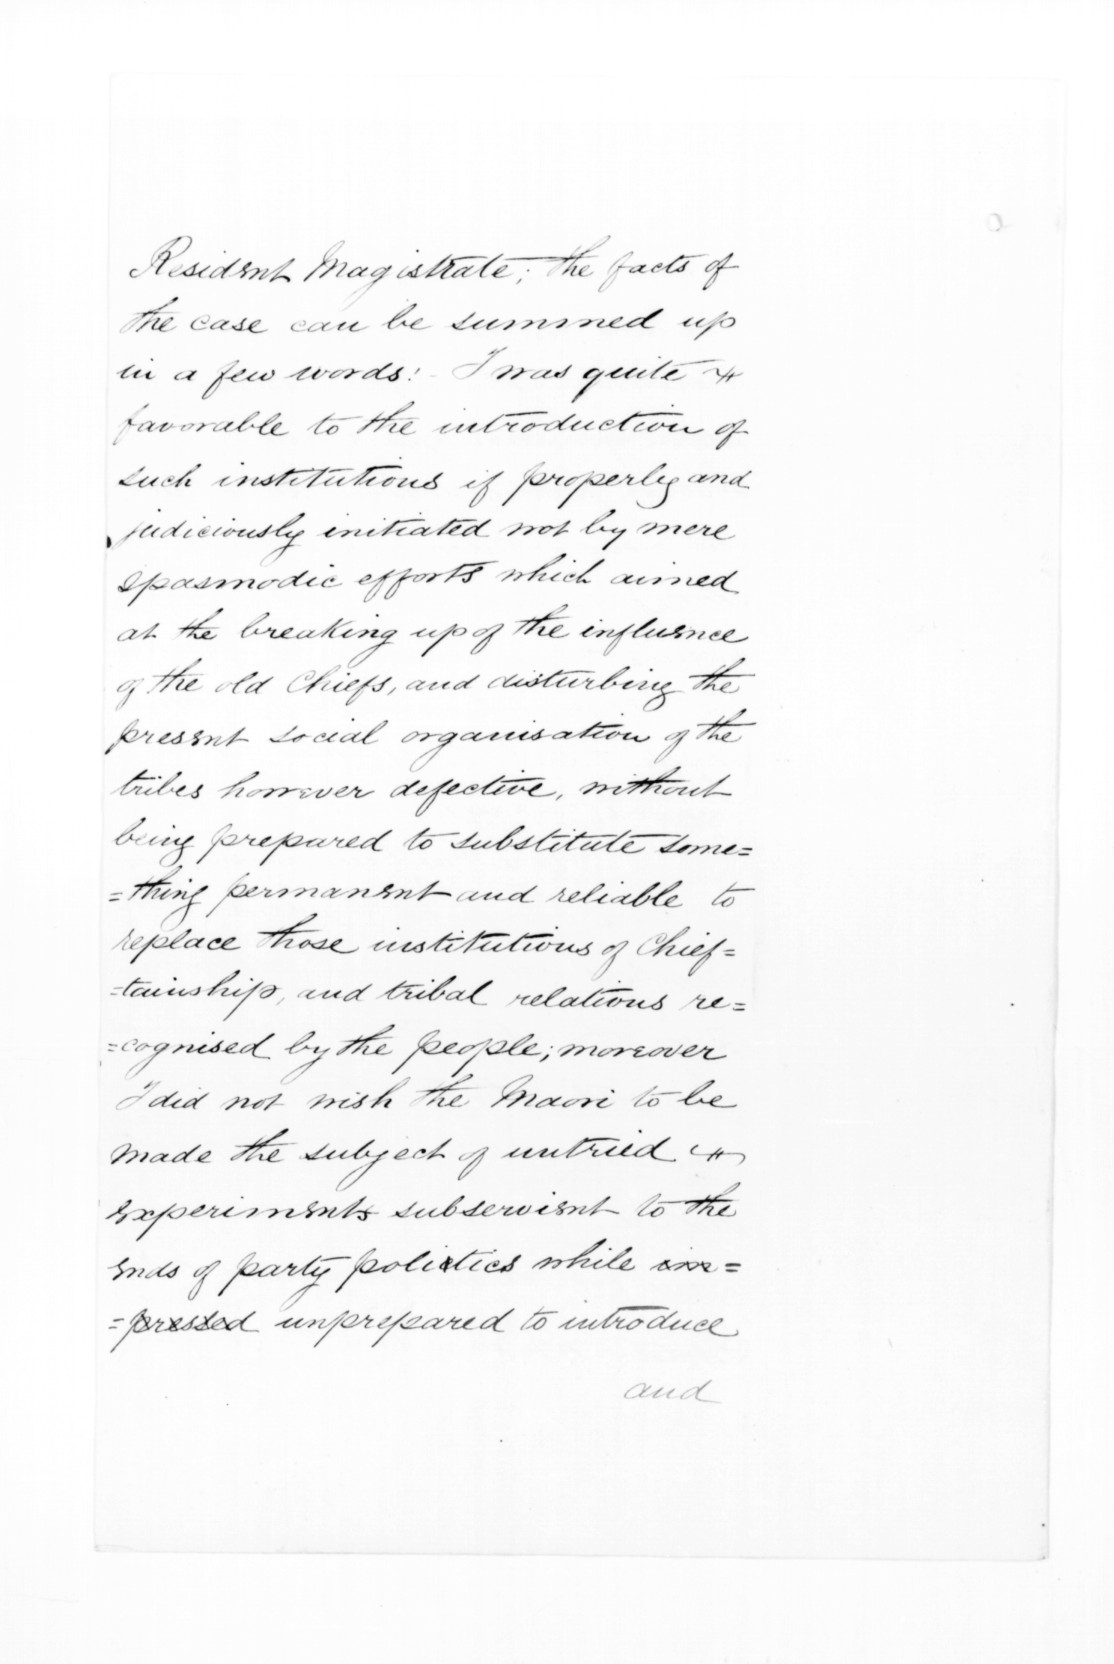 Resident Magistrate; the facts of
the case can be summed up
in a few words: - I was quite
favorable to the introduction of
such institutions if properly and
judiciously initiated not by mere
spasmodic efforts which aimed
at the breaking up of the influence
of the old Chiefs, and disturbing the
present social organisation of the
tribes however defective, without
being prepared to substitute some=
=thing permanent and reliable to
replace those institutions of Chief=
=tainship, and tribal relations re=
=cognised by the people; moreover
I did not wish the Maori to be
made the subject of untried
experiments subservient to the
ends of party politics while im=
=pressed unprepared to introduce
and